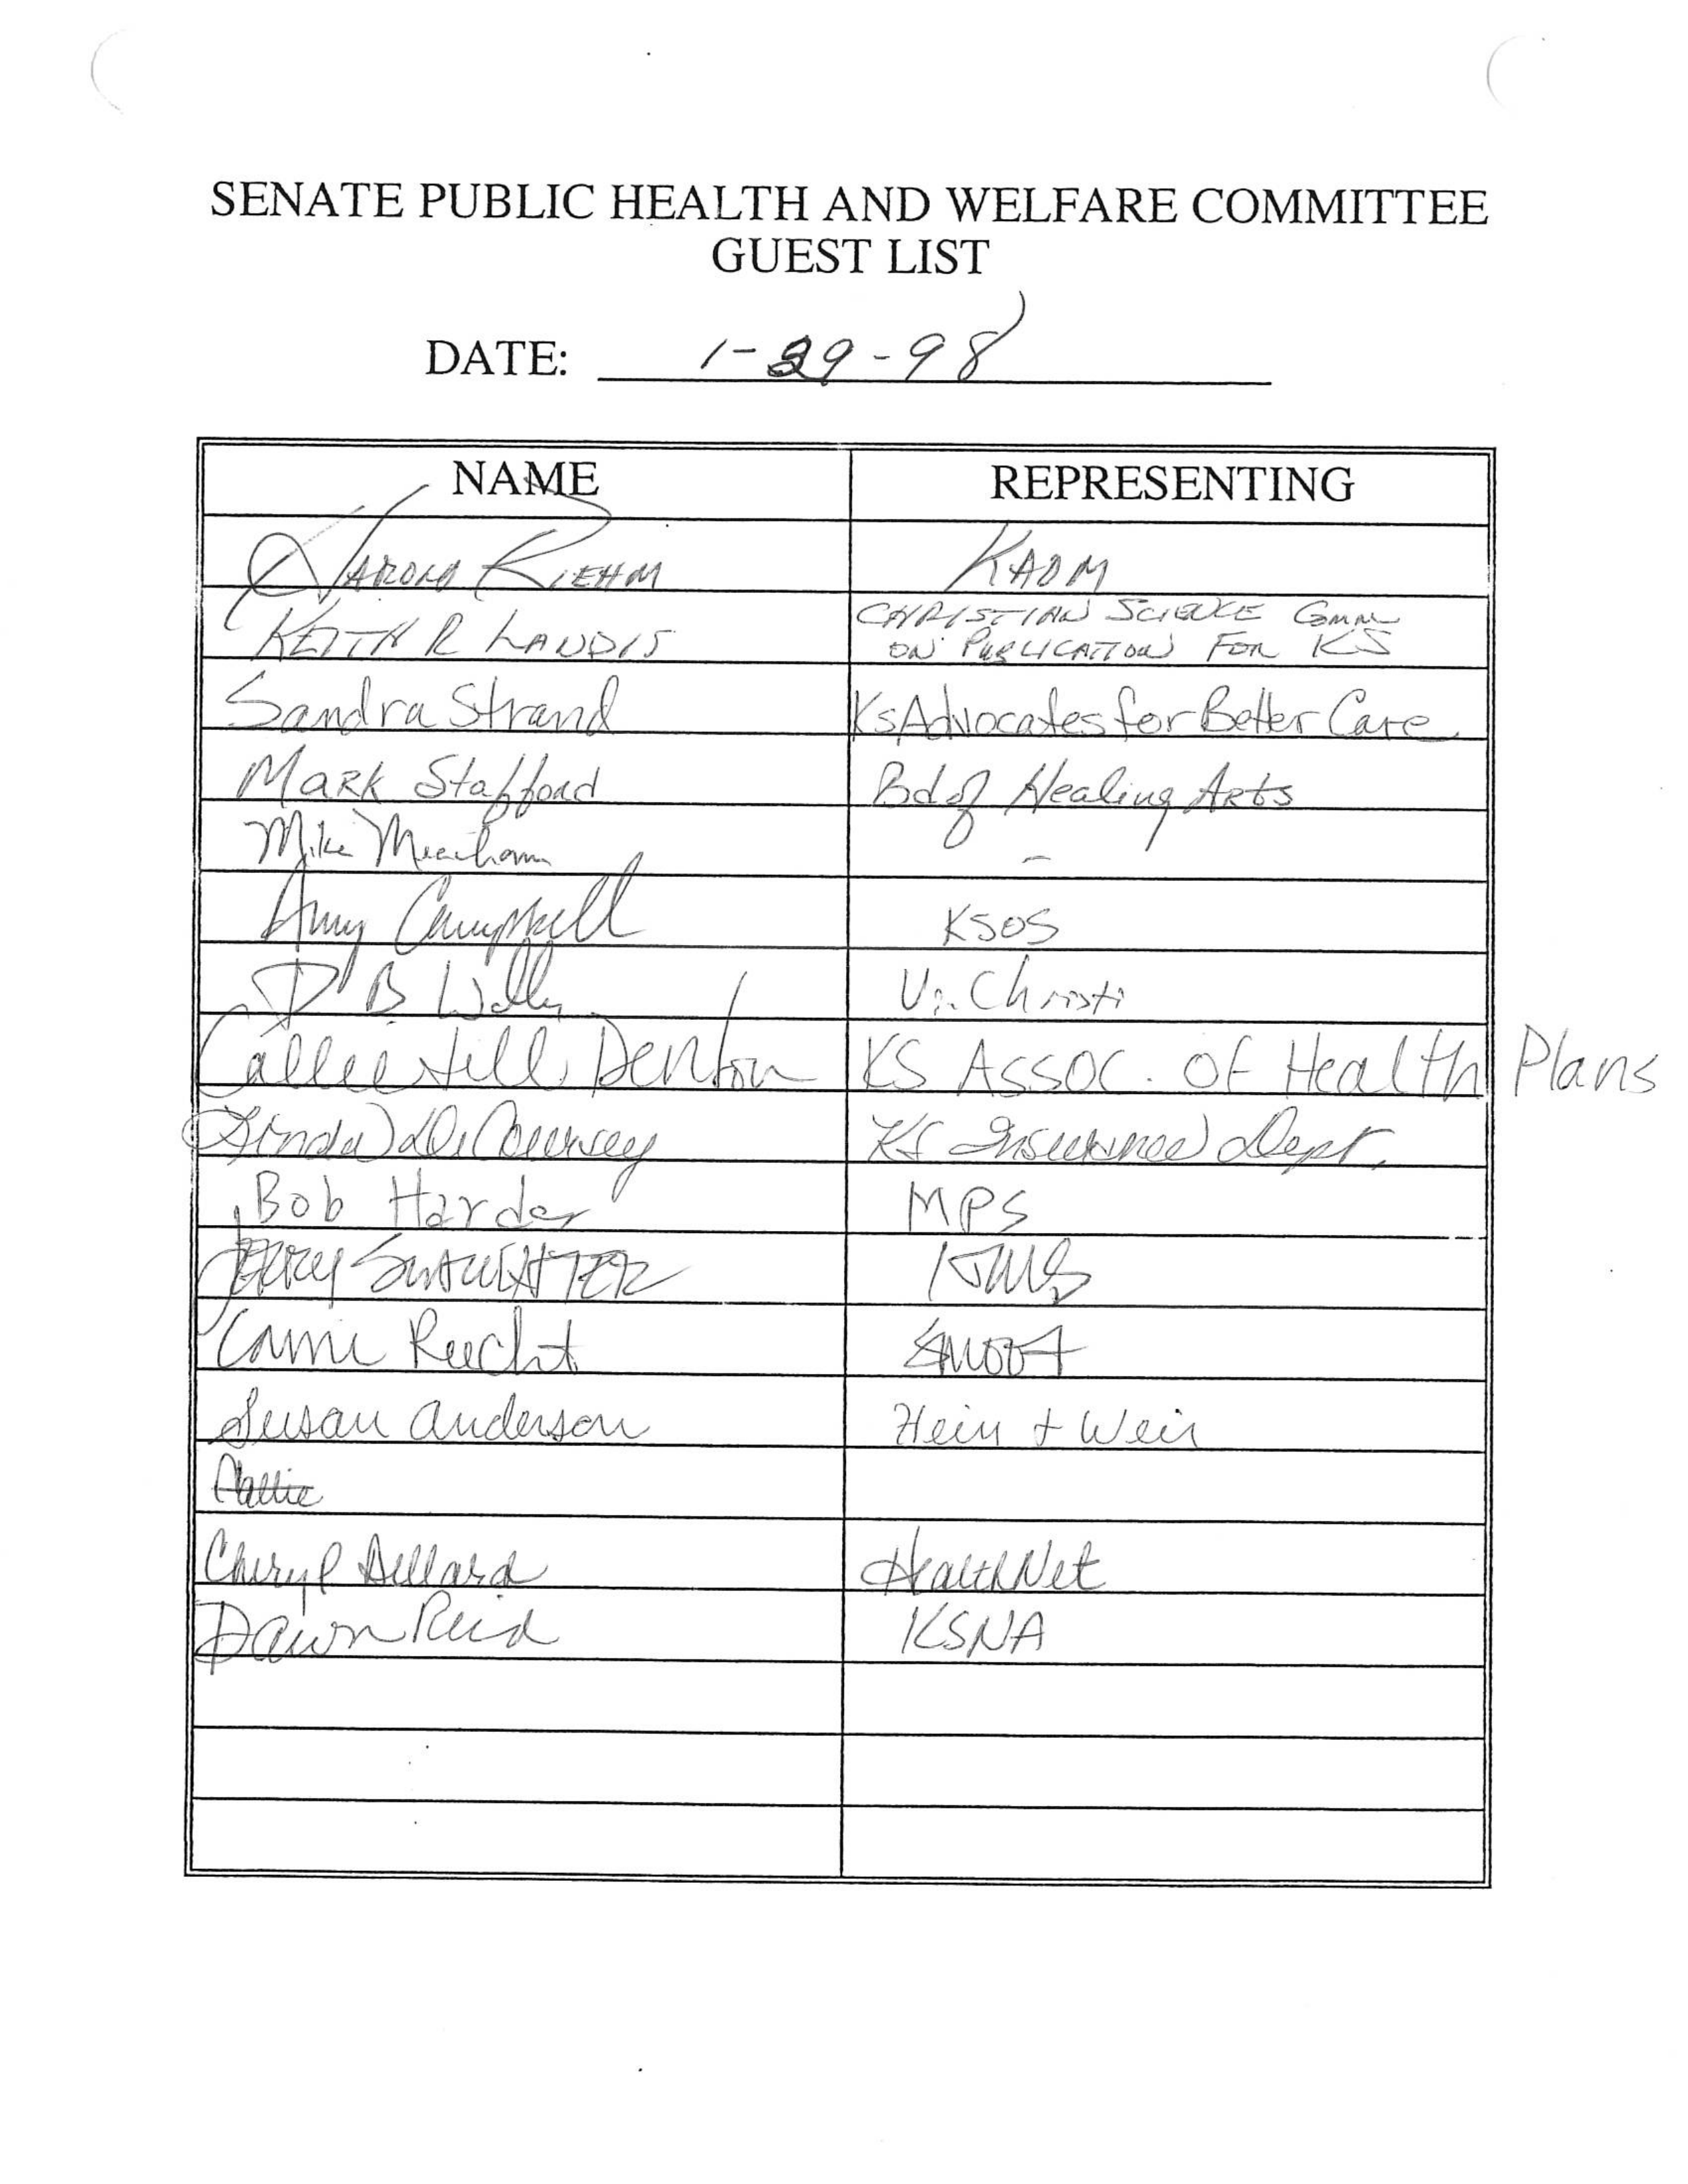 SENATE PUBLIC HEALTH AND WELFARE COMMITTEE
GUEST LIST
DATE: 1-29-98
NAME REPRESENTING
HAROLD RIEHM KAOM
KEITH R LANDIS CHRISTIAN SCIENCE COMM
ON PUBLICATION FOR KS
Sandra Strand Ks Advocates for Better Care
Mark Stafford Bd of Healing Arts
Mike Meacham –
Amy Campbell KSOS
D B Via Christi
Callie Jill Denton KS Assoc. of Health Plans
Linda De Coursey KS Insurance Dept.
Bob Harder MPS
JERRY SLAUGHTER KMS
Cami Reecht
Susan Anderson Hein + Weir
Callie
Cheryl Dillard HealthNet
Dawn Reid KSNA